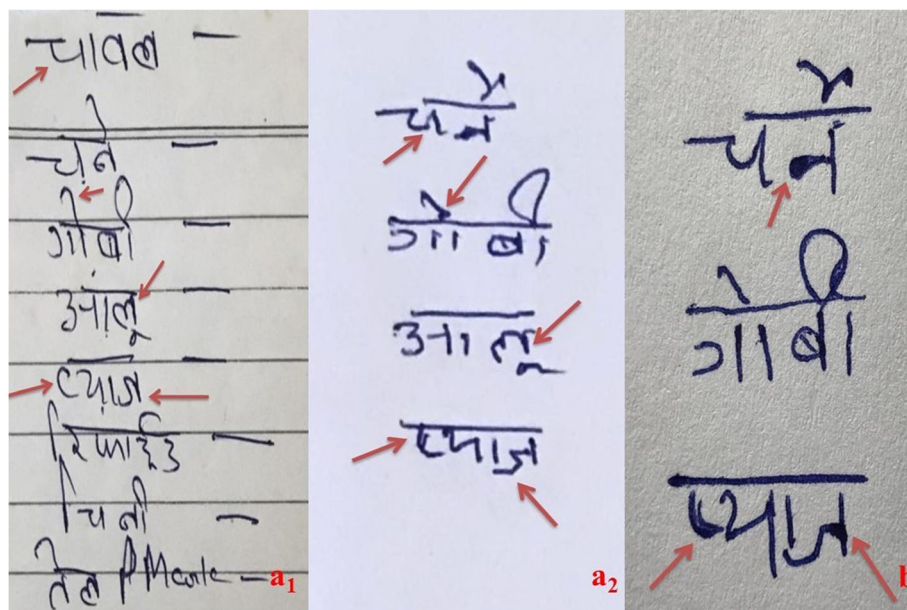 चावल —
चने —
गोबी —
आलू —
प्याज —
रिफाईंड —
चिनी —
तेल PMark —
a1
चने
गोबी
आलू
प्याज
a2
चने
गोबी
प्याज
b